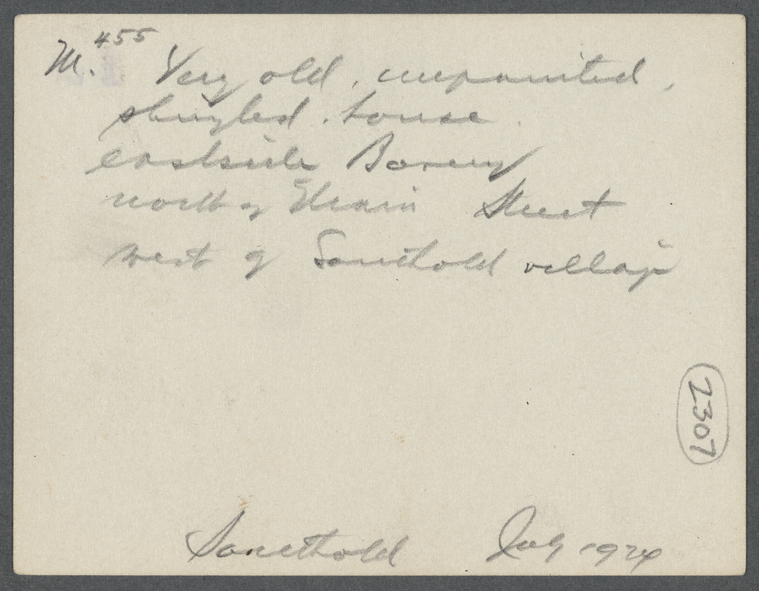 M. 455 Very old, unpainted,
shingled house.
east side Bowery
north of Main Street
west of Southold village
2307
Southold July 1924